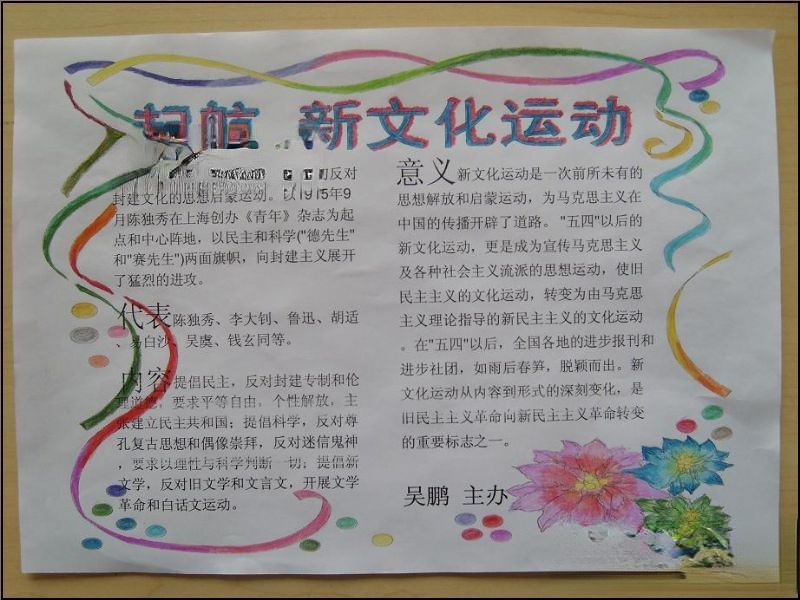 新文化运动
反对
封建文化的思想启蒙运动。以1915年9
月陈独秀在上海创办《青年》杂志为起
点和中心阵地，以民主和科学("德先生"
和"赛先生")两面旗帜，向封建主义展开
了猛烈的进攻。
代表陈独秀、李大钊、鲁迅、胡适
、易白沙、吴虞、钱玄同等。
内容提倡民主，反对封建专制和伦
理道德，要求平等自由，个性解放，主
张建立民主共和国；提倡科学，反对尊
孔复古思想和偶像崇拜，反对迷信鬼神
，要求以理性与科学判断一切；提倡新
文学，反对旧文学和文言文，开展文学
革命和白话文运动。
意义新文化运动是一次前所未有的
思想解放和启蒙运动，为马克思主义在
中国的传播开辟了道路。"五四"以后的
新文化运动，更是成为宣传马克思主义
及各种社会主义流派的思想运动，使旧
民主主义的文化运动，转变为由马克思
主义理论指导的新民主主义的文化运动
。在"五四"以后，全国各地的进步报刊和
进步社团，如雨后春笋，脱颖而出。新
文化运动从内容到形式的深刻变化，是
旧民主主义革命向新民主主义革命转变
的重要标志之一。
吴鹏 主办